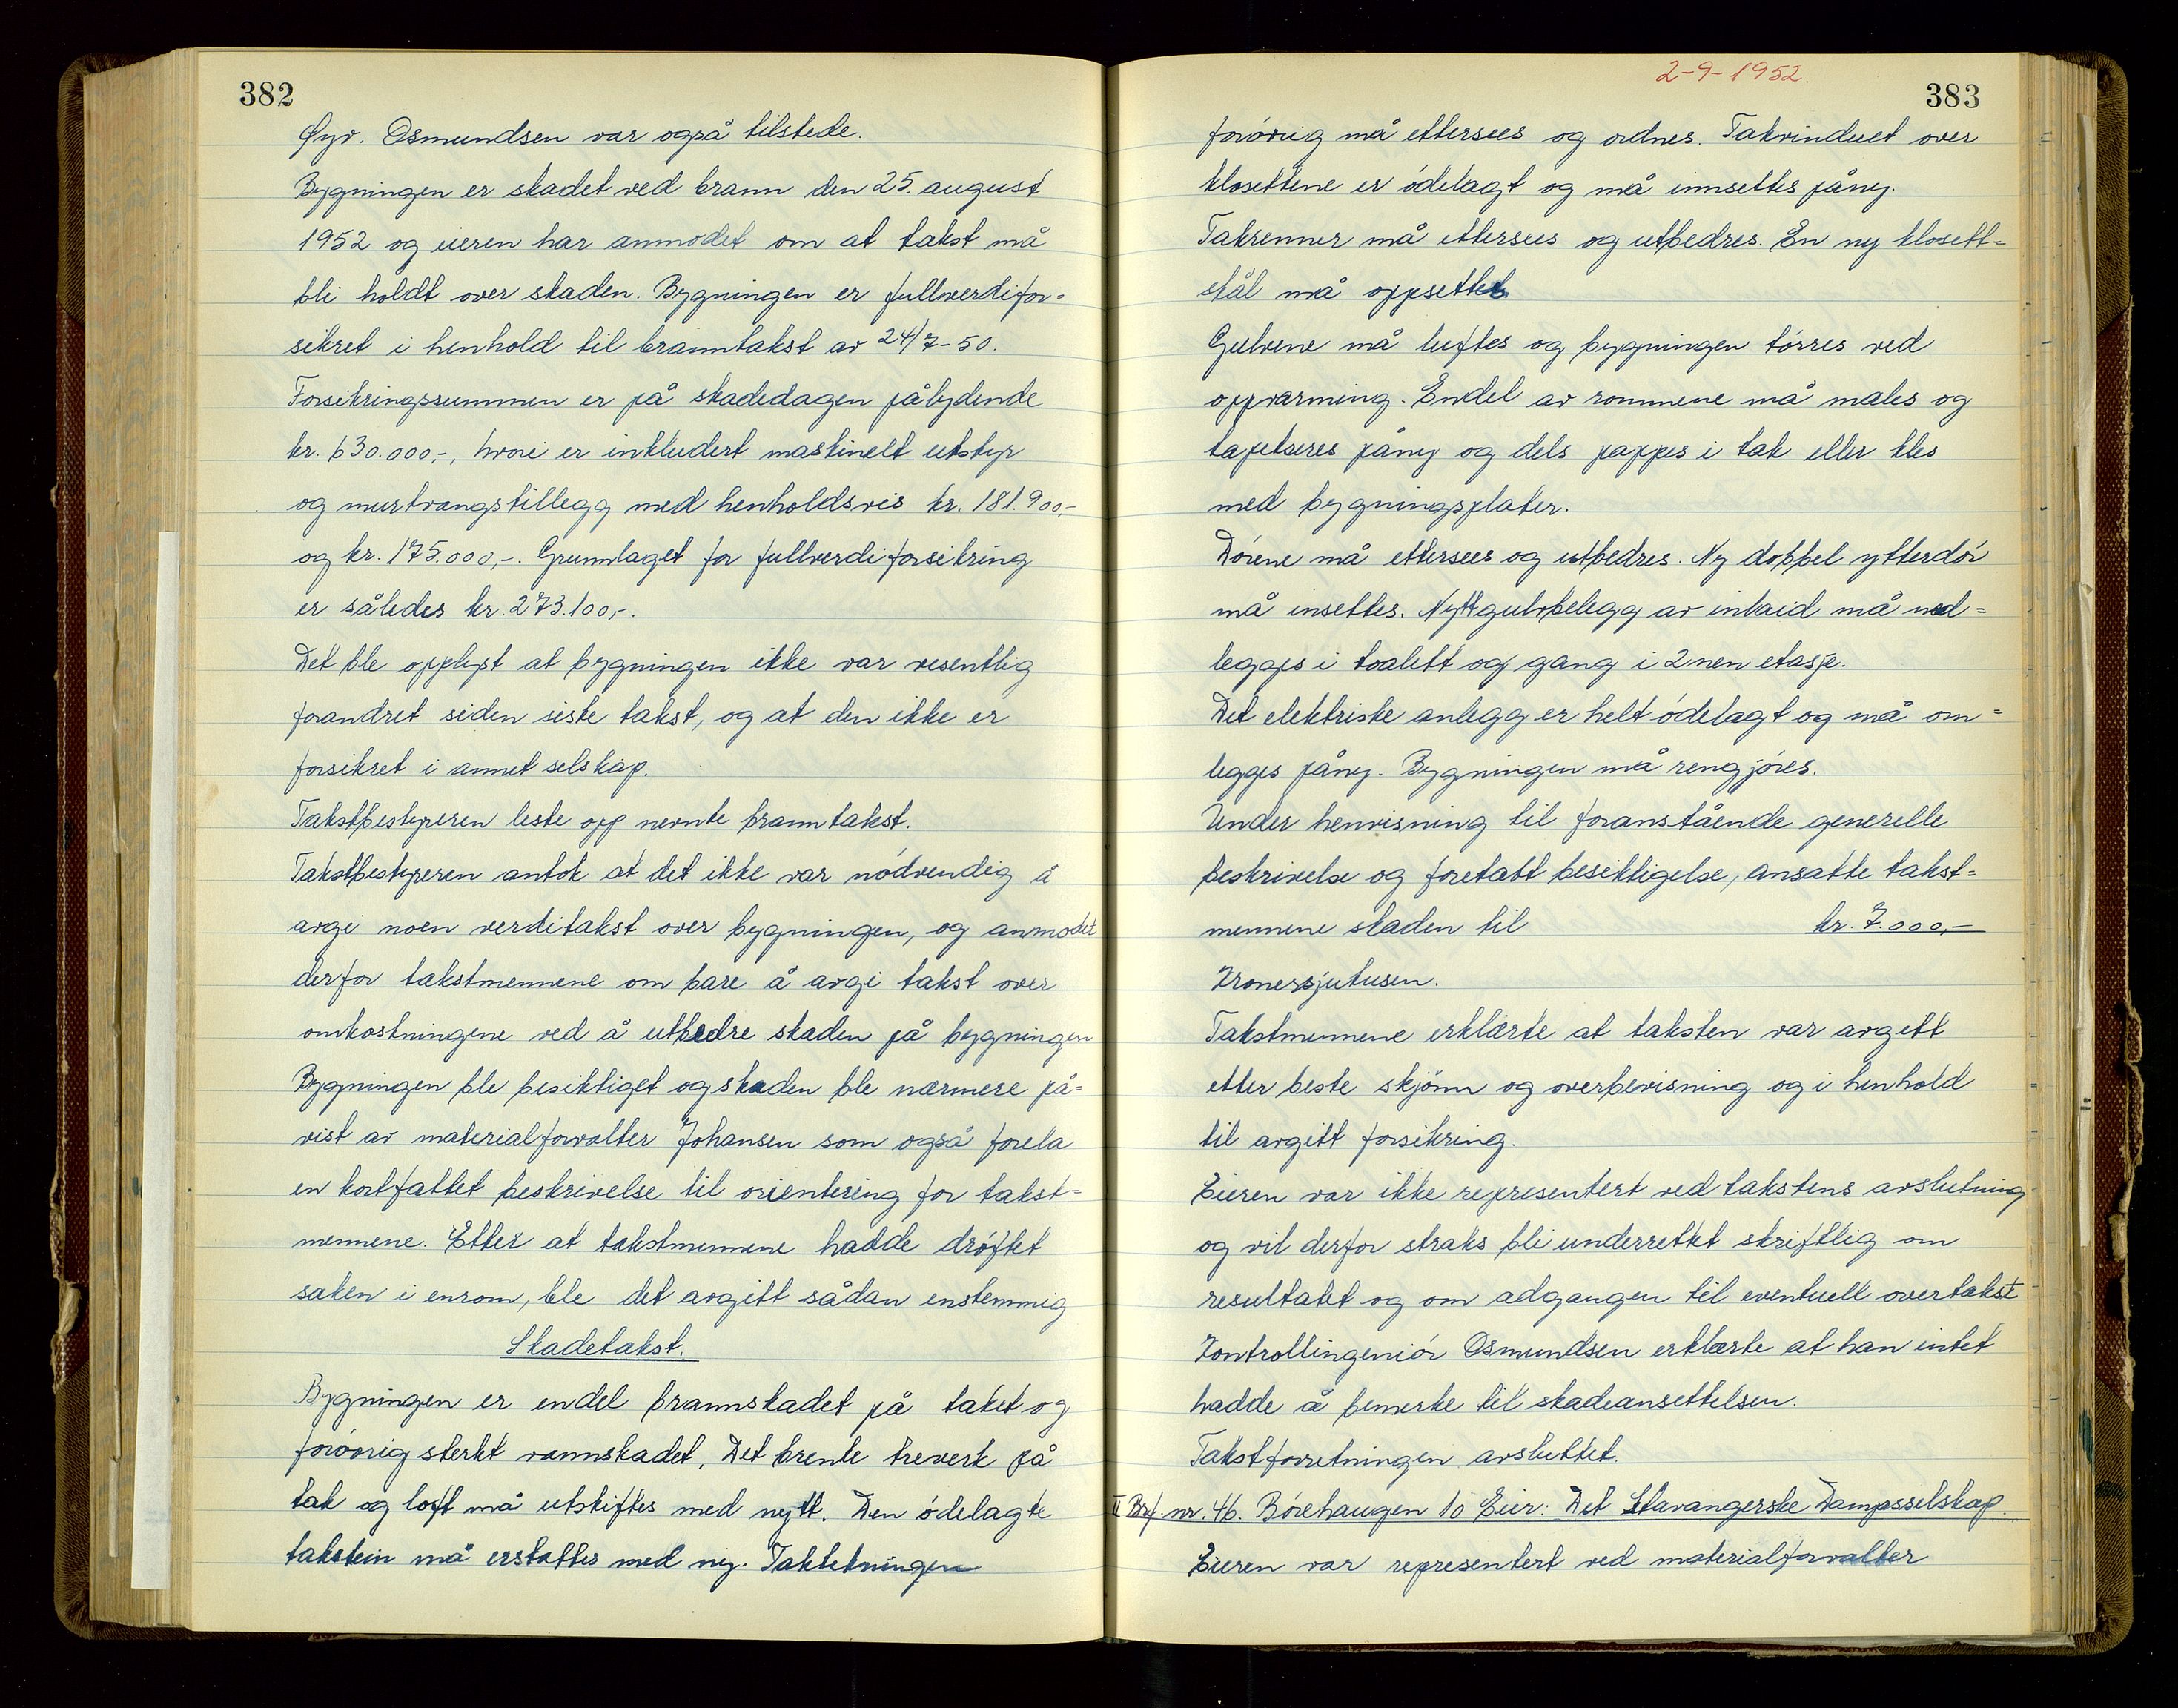 382
Øyv. Osmundsen var også tilstede.
Bygningen er skadet ved brann den 25. august
1952 og eieren har anmodet om at takst må
bli holdt over skaden. Bygningen er fullverdifor-
sikret i henhold til branntakst av 24/7-50.
Forsikringssummen er på skadedagen pålydende
kr. 630.000,-, hvori er inkludert maskinelt utstyr
og murtvangstillegg med henholdsvis kr. 181.900,-
og kr. 175.000,-. Grunnlaget for fullverdiforsikring
er således kr. 273.100,-.
Det ble opplyst at bygningen ikke var vesentlig
forandret siden siste takst, og at den ikke er
forsikret i annet selskap.
Takstbestyreren leste opp nevnte branntakst.
Takstbestyreren antok at det ikke var nödvendig å
avgi noen verditakst over bygningen, og anmodet
derfor takstmennene om bare å avgi takst over
omkostningene ved å utbedre skaden på bygningen
Bygningen ble besiktiget og skaden ble nærmere på=
vist av materialforvalter Johansen som også forela
en kortfattet beskrivelse til orientering for takst=
mennene. Etter at takstmennene hadde dröftet
saken i enrom, ble det avgitt sådan enstemmig
Skadetakst.
Bygningen er endel brannskadet på taket og
forövrig sterkt vannskadet. Det brente treverk på
tak og loft må utskiftes med nytt. Den ödelagte
takstein må erstattes med ny. Taktekningen
2-9-1952.
383
forövrig må ettersees og ordnes. Takvinduet over
klosettene er ödelagt og må innsettes påny.
Takrenner må ettersees og utbedres. En ny klosett=
skål må oppsettes.
Gulvene må luftes og bygningen törres ved
oppvarming. Endel av rommene må males og
tapetseres påny og dels pappes i tak eller kles
med bygningsplater.
Dörene må ettersees og utbedres. Ny dobbel ytterdör
må insettes. Nytt gulvbelegg av inlaid må ned=
legges i toalett og gang i 2nen etasje.
Det elektriske anlegg er helt ödelagt og må om=
legges påny. Bygningen må rengjöres.
Under henvisning til foranstående generelle
beskrivelse og foretatt besiktigelse, ansatte takst=
mennene skaden til kr. 7.000,-
Kronersjutusen.
Takstmennene erklærte at taksten var avgitt
etter beste skjönn og overbevisning og i henhold
til avgitt forsikring.
Eieren var ikke representert ved takstens avslutning
og vil derfor straks bli underrettet skriftlig om
resultatet og om adgangen til eventuell overtakst
Kontrollingeniör Osmundsen erklærte at han intet
hadde å bemerke til skadeansettelsen.
Takstforretningen avsluttet.
II Brf. nr. 46. Börehaugen 10 Eier: Det Stavangerske Dampsselskap.
Eieren var representert ved materialforvalter